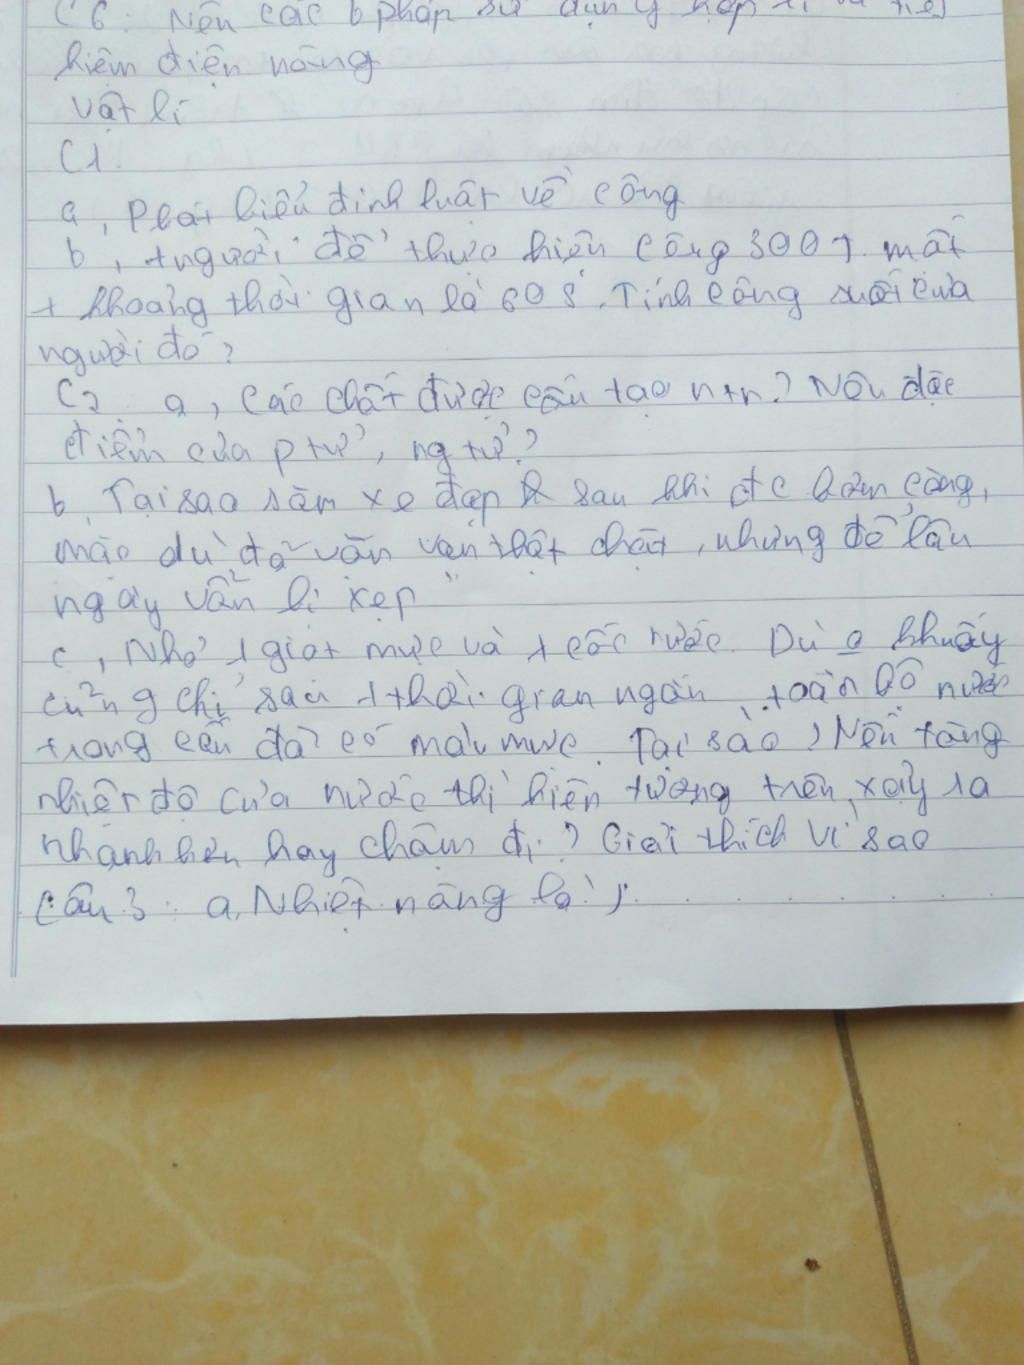 C6: Nêu các b pháp sử dụng hợp lí và tiết
kiệm điện năng
Vật lí
C1.
a, Phát biểu định luật về công
b, 1 người đó thực hiện công 300J mất
1 khoảng thời gian là 60s. Tính công suất của
người đó?
C2 a, Các chất được cấu tạo ntn? Nêu đặc
điểm của p tử, ng tử?
b, Tại sao săm xe đạp sau khi đc bơm căng,
mặc dù đã vặn van thật chặt, nhưng để lâu
ngày vẫn bị xẹp
c, Nhỏ 1 giọt mực và 1 cốc nước. Dù o khuấy
cũng chỉ sau 1 thời gian ngắn, toàn bộ nước
trong cốc đã có màu mực. Tại sao? Nếu tăng
nhiệt độ của nước thì hiện tượng trên xảy ra
nhanh hơn hay chậm đi? Giải thích vì sao
Câu 3: a, Nhiệt năng là j.